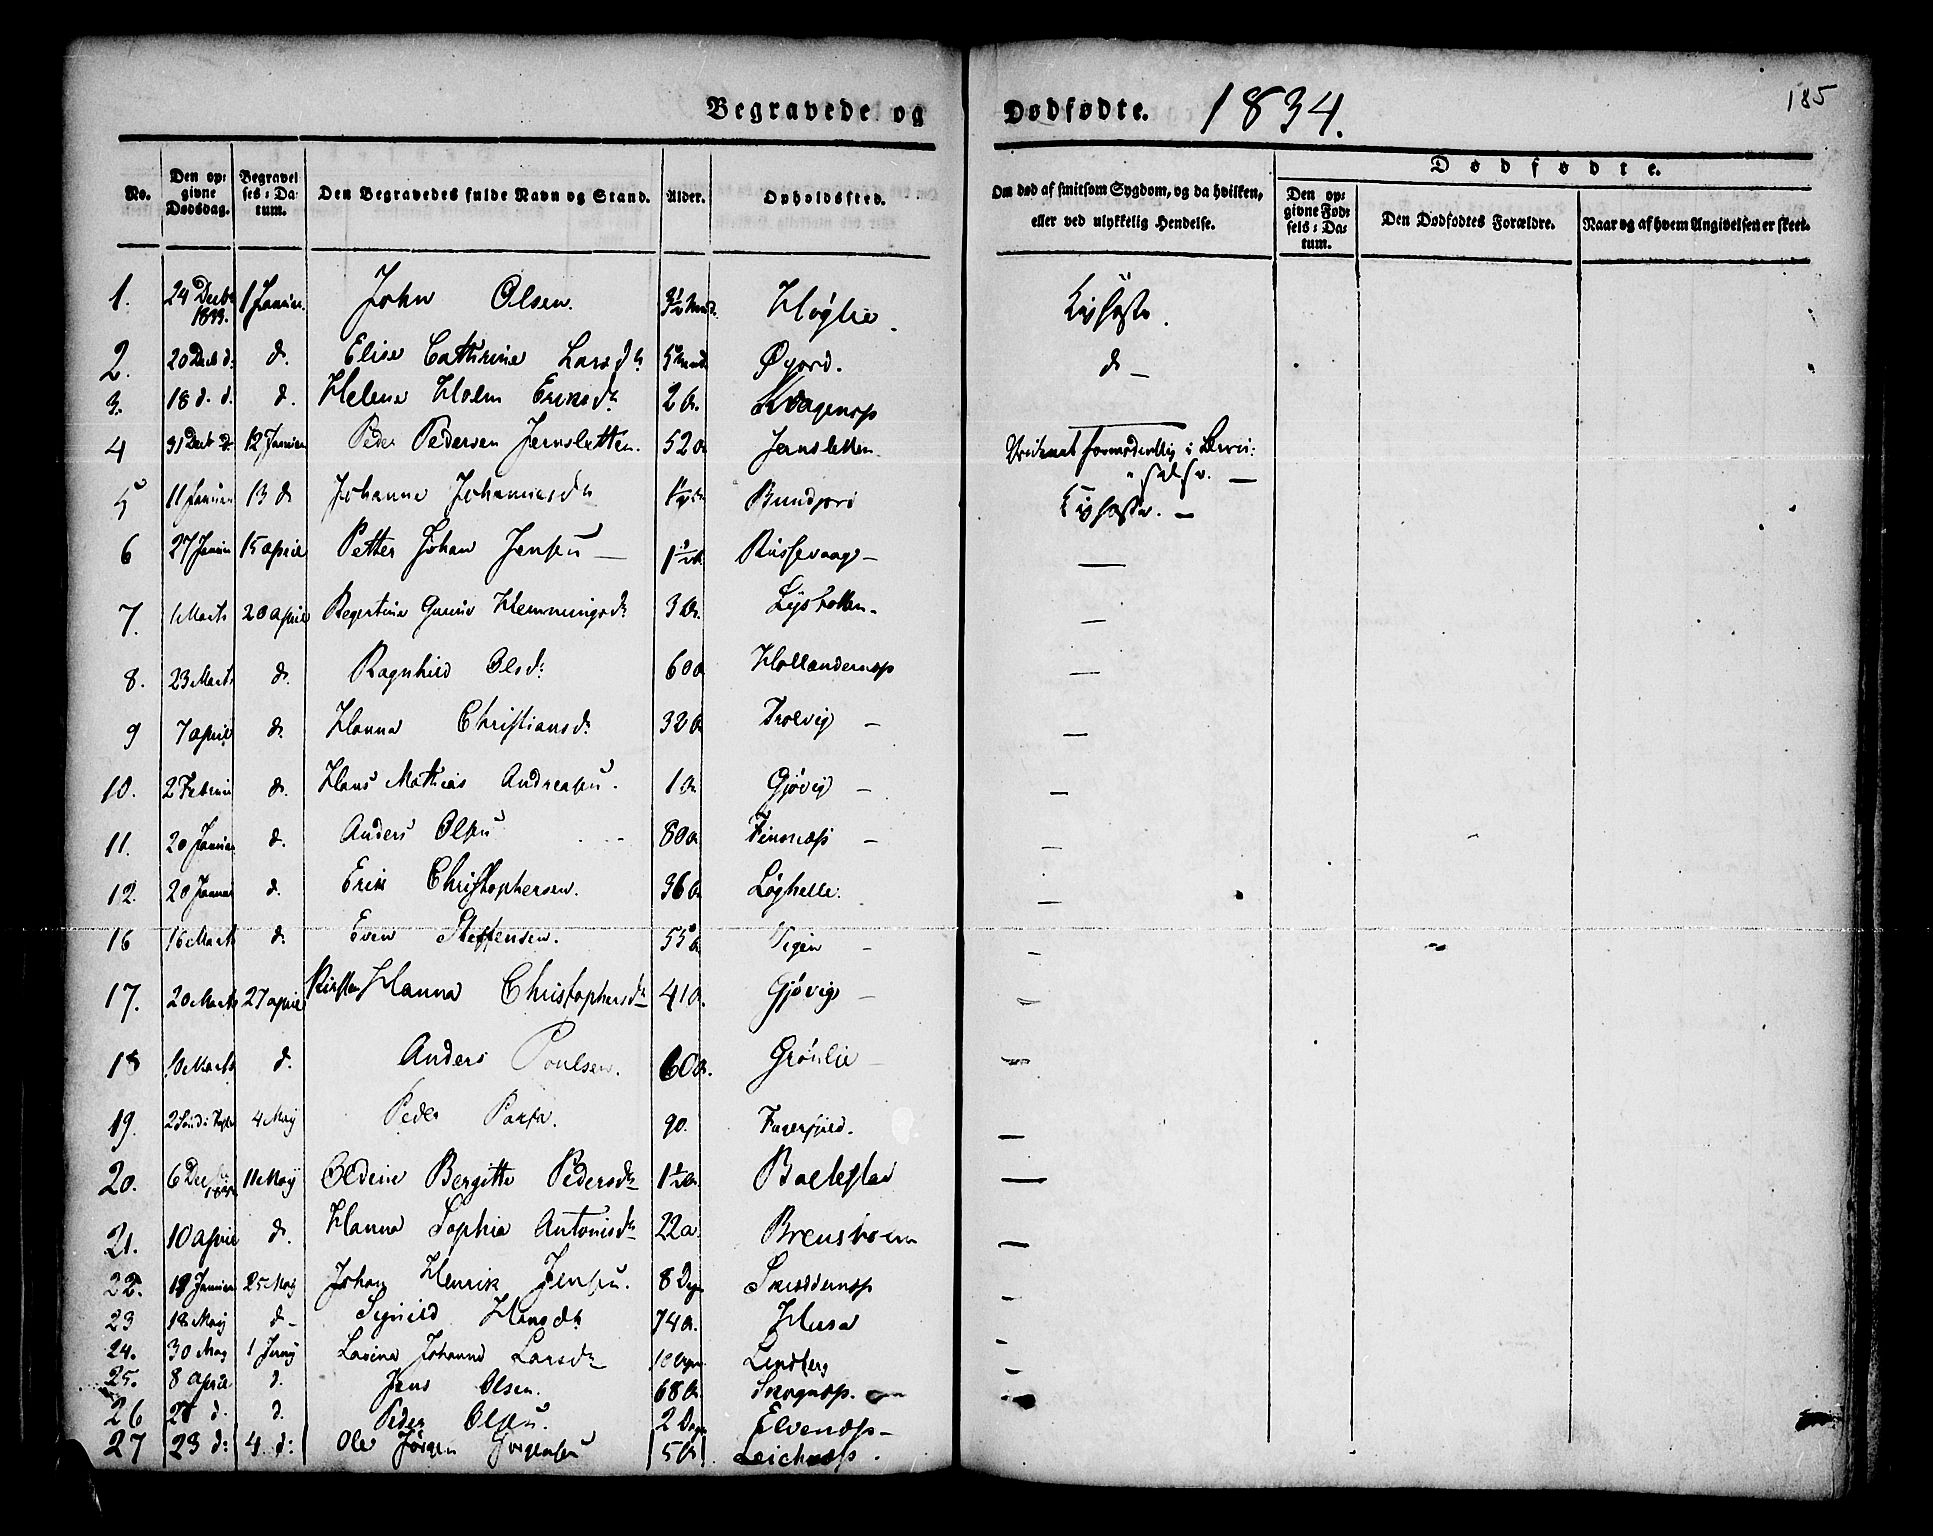 185
Begravede og Dødfødte. 1834.
No. Den opgivne Dødsdag. Begravelses-Datum. Den Begravedes fulde Navn og Stand. Alder. Opholdssted. Om død af smitsom Sygdom, og da hvilken, eller ved ulykkelig Hendelse. Dødfødte.
Den opgivne Fødsels-Datum. Den Dødfødtes Forældre. Naar og af hvem Angivelsen er skeet.
1. 24 Decbr 1833. 1 Januar. John Olsen. 3½ Maand. Høglie. Kighoste.
2. 20 Decb d: d. Elise Cathrine Larsd. 5 Maand. Øyord. d —
3. 18 d. d. d. Helena Holm Eriksd. 2 A. Kvagenesp
4 31 Decb d. 12 Januar Peder Pedersen Jernsletten. 52 A Jernsletten. formodentlig i
5 11 Januar 13 d Johanna Johannesd Bundjord Kighoste. —
6 27 Januar 15 april Petter Johan Jensen — 1½ A Russevaag —
7. 1 Marts 20 april Regertine Hemmingsd. 3 A. Lysbotten.
8. 23 Marts d. Ragnhild Olsd: 60 A Hollendernesp
9 7 april d. Hanna Christiansd. 32 A Trolvig —
10. 2 Februar d. Hans Mathias Andreasen. 1 A Gjøvig —
11. 20 Januar d. Anders Olsen 80 A. Finsnæss —
12. 20 Januar d. Erik Christophersen. 36 A Løghelle.
16 16 Marts d. Even Steffensen. 55 A Vigen —
17. 20 Marts 27 april Kirsten Hanna Christophersd. 41 A. Gjøvig —
18 Marts d. Anders Poulsen. 60 A. Grønlie —
19. 4 May Peder 90. Fagerfjeld.
20. 6 Dec 11 May Oldine Bergitte Pedersd. 1½ A. Baltestad
21. 10 april d. Hanna Sophia Antonisd. 22 a. Brensholmen
22. 18 Januar 25 May Johan Henrik Jensen. 8 Dage Skroddernesp
23 18 May d — Signild Hansd. 74 A. Husa
24. 30 May 1 Juny Lavina Johanna Larsd. 10 Dage Lendberg
25. 8 april. d. Jens Olsen. 68 A. Skognesp.
26 28 d. d. Peder Olsen. 2 Dage Elvenæss —
27 23 d: 4 d: Ole Jørgen Jørgensen 5 A Leichnæss.